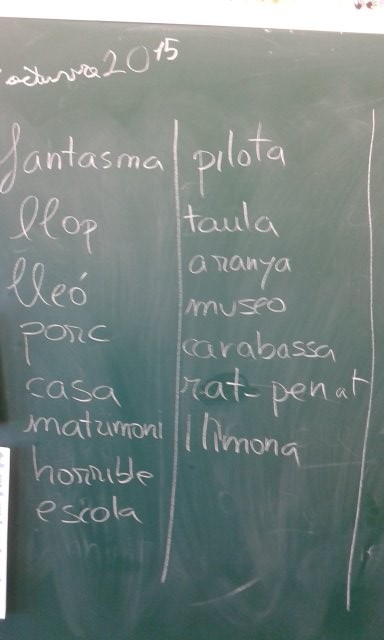 octuvre 2015
fantasma
llop
lleó
porc
casa
matrimoni
horrible
escola
pilota
taula
aranya
museo
carabassa
rat-penat
llimona